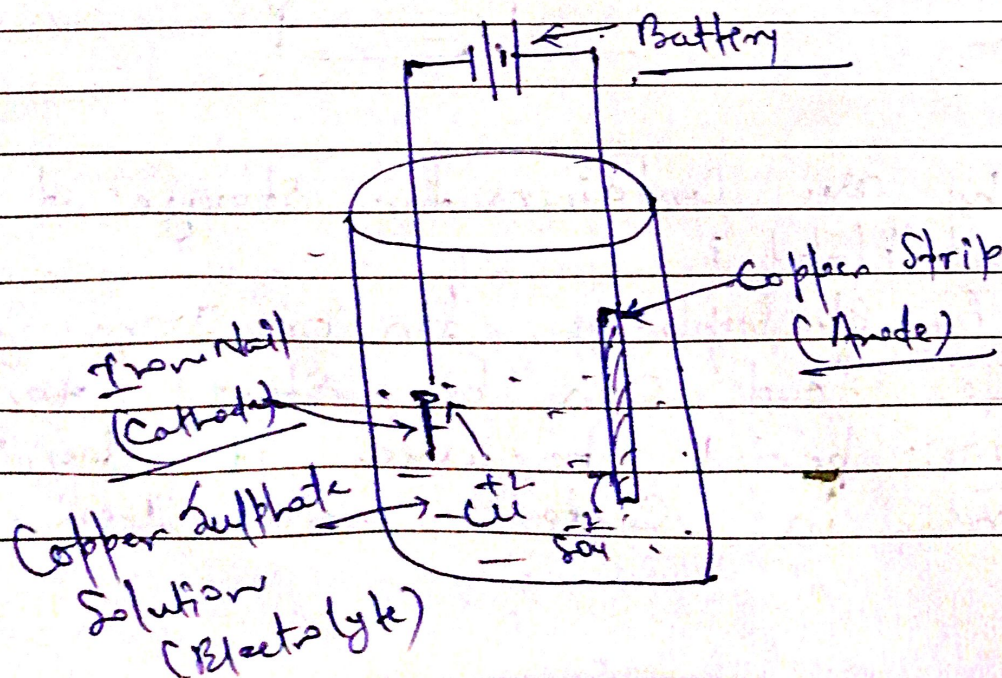 Battery
Copper Strip
(Anode)
Iron Nail
(Cathode)
Cu+2
SO4-2
Copper Sulphate
Solution
(Electrolyte)